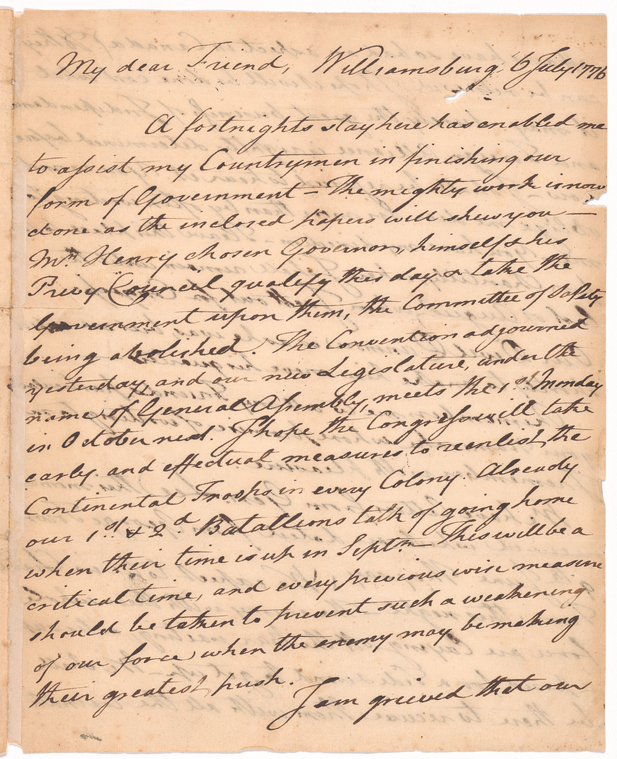 My dear Friend, Williamsburg 6 July 1776
A fortnights stay here has enabled me
to assist my Countrymen in finishing our
form of Government – The mighty work is now
done as the inclosed papers will shew you –
Mr. Henry chosen Governor, himself & his
Privy Council qualify this day & take the
Government upon them, the Committee of Safety
being abolished. The Convention adjourned
yesterday, and our new Legislature, under the
name of General Assembly, meets the 1st. Monday
in October next. I hope the Congress will take
early and effectual measures to reenlist the
Continental Troops in every Colony. Already
our 1st. & 2d. Batallions talk of going home
when their time is up in Septr. – This will be a
critical time, and every previous wise measure
should be taken to prevent such a weakening
of our force when the enemy may be making
their greatest push.
I am grieved that our